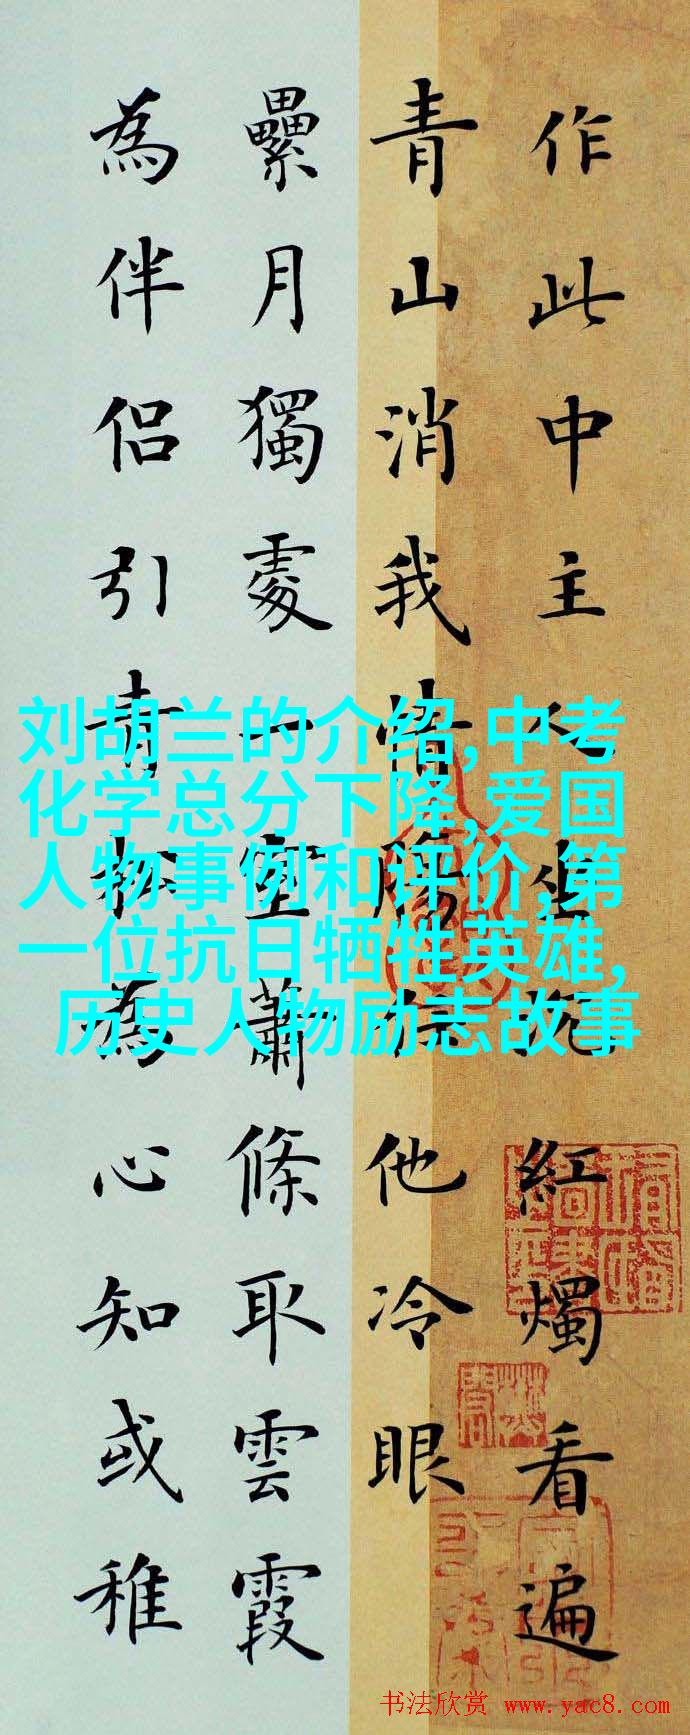 作此中主人坐紅燭看遍
青山消我他冷眼
纍月獨處一室蕭條取雲霞
為伴侣引青松為心知或稚
刘胡兰的介绍,中考
化学总分下降,爱国
人物事例和评价,第
一位抗日牺牲英雄,
历史人物励志故事
书法欣赏 www.yac8.com